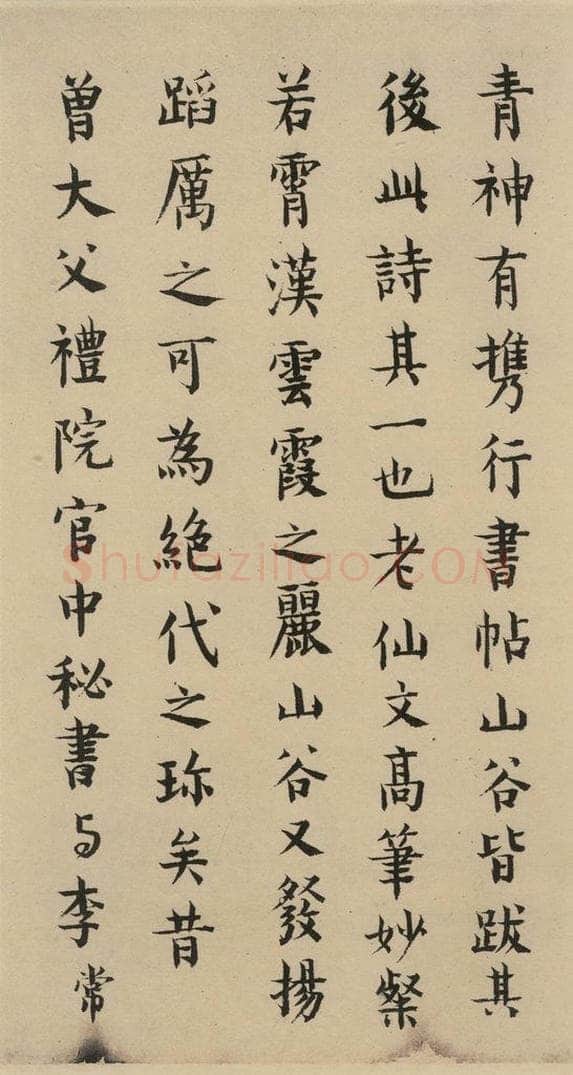 青神有携行書帖山谷皆跋其
後此詩其一也老仙文高筆妙粲
若霄漢雲霞之麗山谷又發揚
蹈厲之可為絶代之珎矣昔
曾大父禮院官中秘書与李常
Shufaziliao.COM